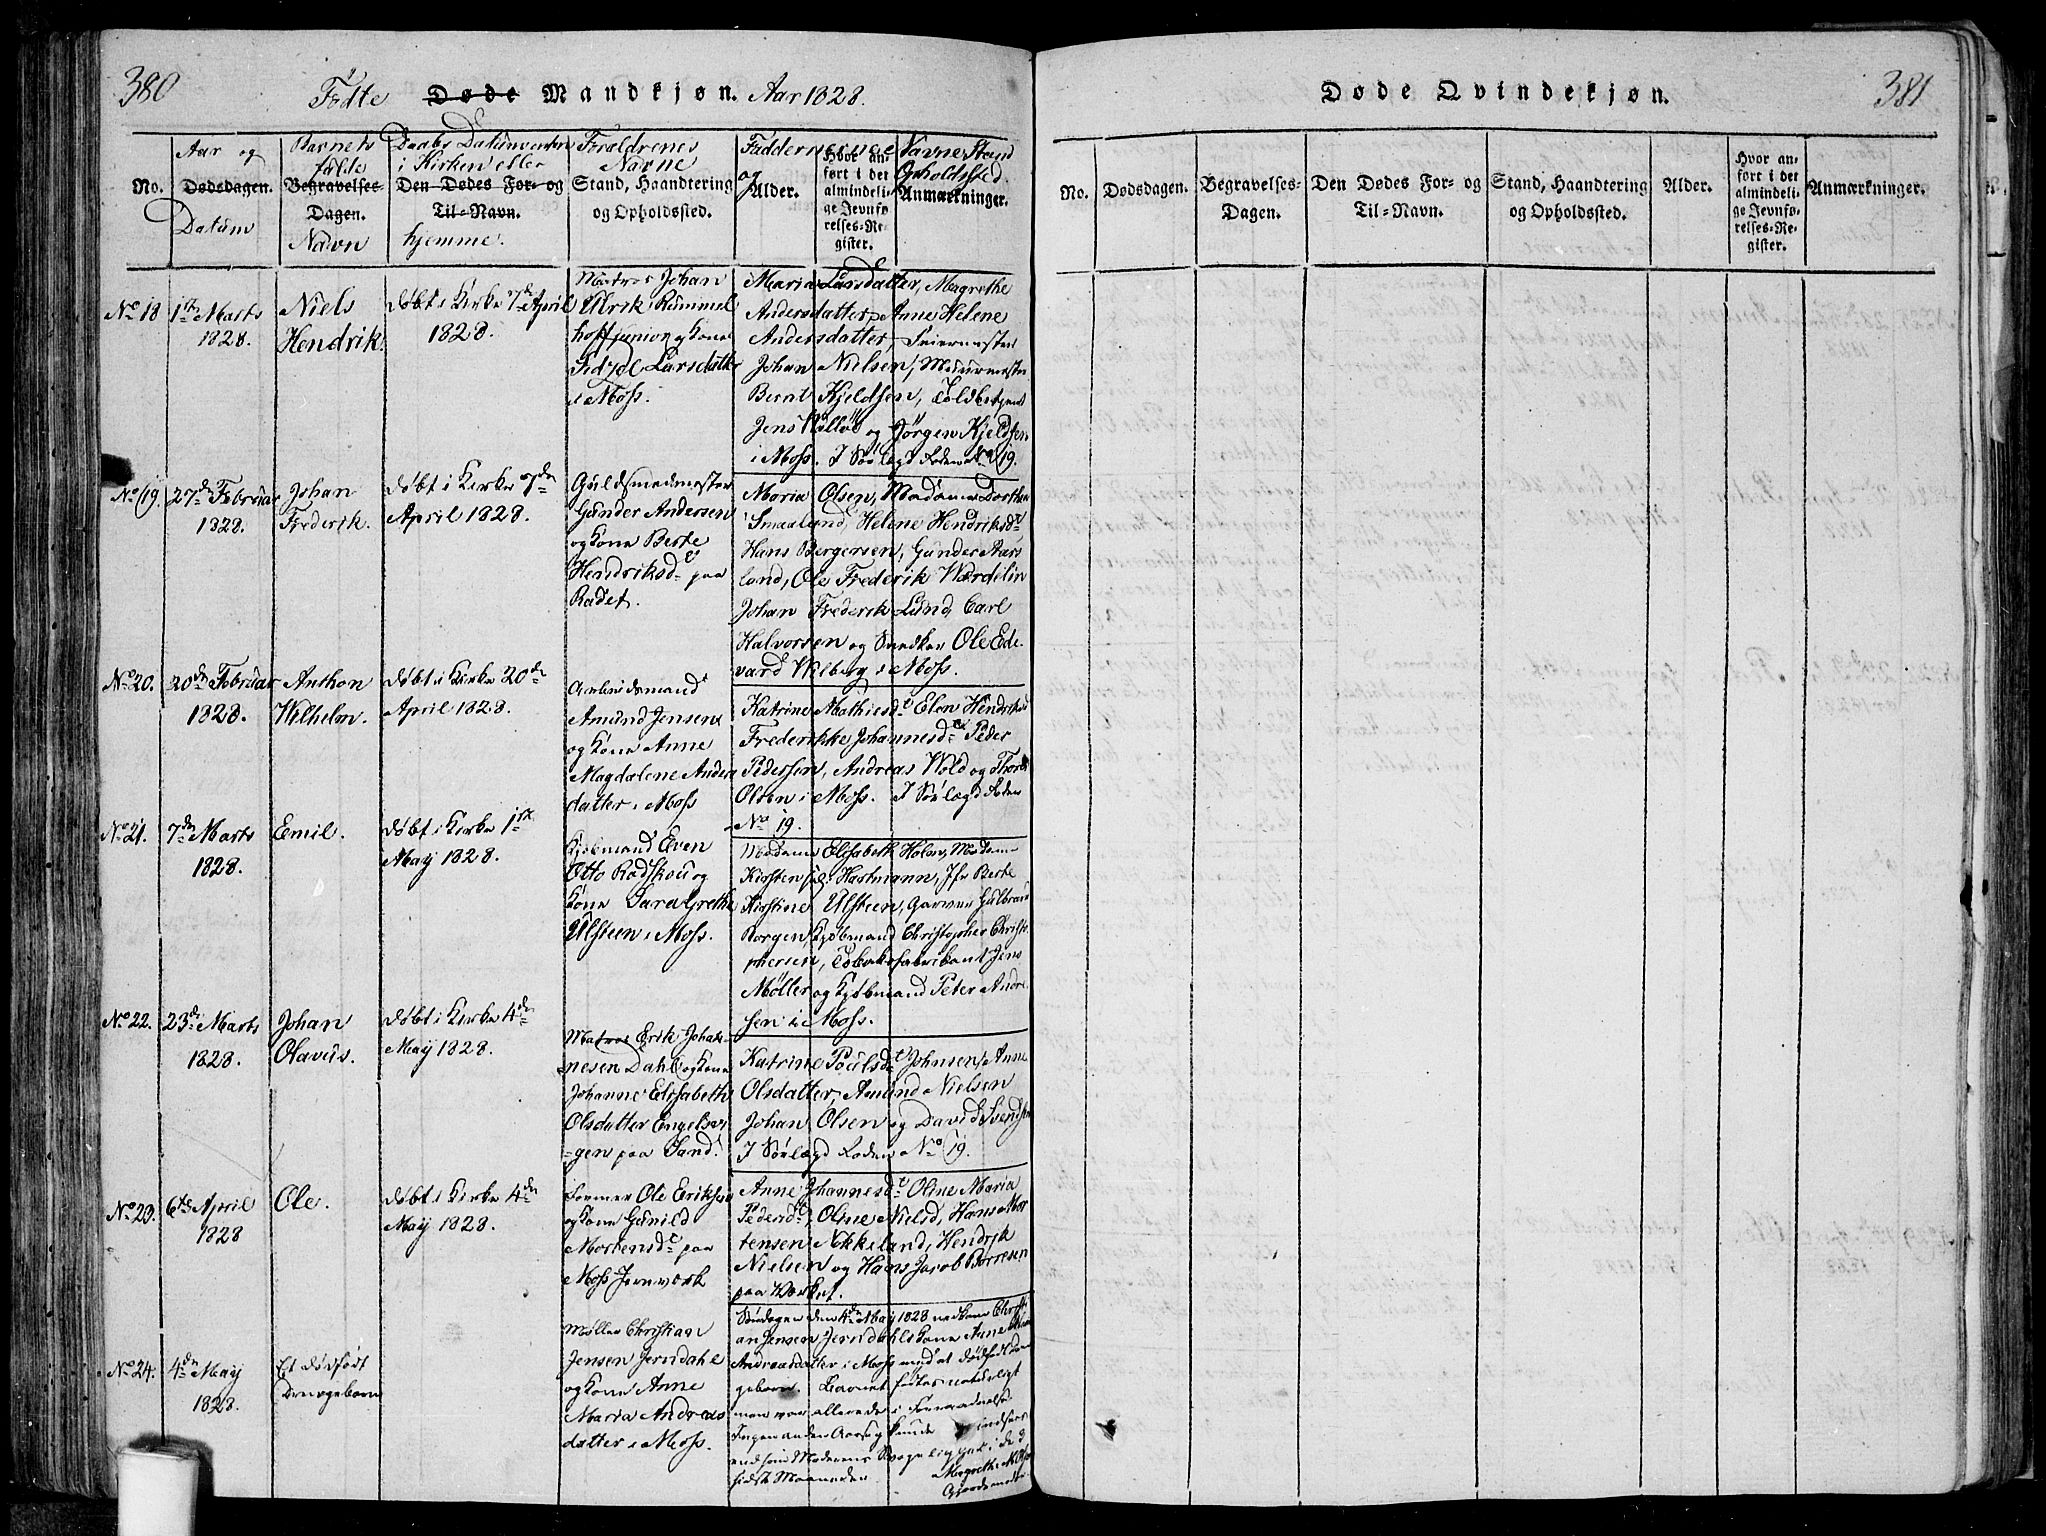 380
Fødte Døde Mandkjøn. Aar 1828.
Aar og Dødsdagen. Datum
Barnets fulde Begravelses-Dagen. Navn
Daabs Datum enten i Kirken eller Den Dødes For- og Til-Navn. hjemme.
Forældrenes Navne Stand, Haandtering og Opholdssted.
Faddernes Navne Stand og Opholdssted.
No.
Alder.
Hvor anført i det almindelige Jevnførelses-Register.
Anmærkninger.
No 18
1ste Marts
1828.
Niels
Hendrik.
døbt i Kirke 7de April
1828.
Matros Johan
Ulrik Rummel
hoff junior og Kone
Sidsel Larsdatter
i Moss.
Maria Larsdatter, Magrethe
Andersdatter, Anne Helene
Andersdatter Feiermester
Johan Nielsen, Muurmester
Bernt Kjeldsen, Toldbetjent
Jens Møller og Jørgen Kjeldsen
i Moss. I Sørlægd Roden No 19.
No 19.
27de Februar
1828.
Johan
Frederik.
døbt i Kirke 7de
April 1828.
Guldsmedmester
Gunder Andersen
og Kone Berte
Hendriksd. paa
Rådet.
Maria Olsen, Madame Dorthea
Smaalund, Helene Hendriksd.
Hans Bergersen, Gunder Aars
land, Ole Frederik Wærdelin
Johan Frederik Lund, Carl
Halvorsen og Snedker Ole Ed
vard Wilberg i Moss.
No 20.
20de Februar
1828.
Anthon
Wilhelm.
døbt i Kirke 20de
April 1828.
Arbeidsmand
Amund Jensen
og Kone Anne
Magdalene Anders
datter i Moss
Katrine Mathiesd. Elen Hendriksd
Frederikke Johannesd. Peder
Pedersen, Andreas Wold og Thor
Olsen i Moss. I Sørlægd Roden
No 19.
No 21.
7de Marts
1828.
Emil.
døbt i Kirke 1ste
May 1828.
Kjøbmand Even
Otto Rodskou og
Kone Sara Grethe
Ulsteen i Moss.
Madame Elisabeth Holm, Madame
Kirsten sal. Hartmann, Jfr Berte
Kirstine Ulsteen, Garver Gulbran
Borgen Kjøbmand Christopher Christo
phersen, Tobaksfabrikant Jens
Møller og Kjøbmand Peter Andre
sen i Moss.
No 22.
23de Marts
1828.
Johan
Olavus.
døbt i Kirke 4de
May 1828.
Matros Erik Johan-
nesen Dahl og Kone
Johanne Elisabeth
Olsdatter Engelsvi-
gen paa Sand.
Katrine Poulsd. Johnsen, Anne
Olsdatter, Amund Nielsen
Johan Olsen og David Svendsen
I Sørlægd Roden No 19.
No 23.
6te April
1828
Ole.
døbt i Kirke 4de
May 1828.
Former Ole Eriksen
og Kone Gunild
Mortensd. paa
Moss Jernværk
Anne Johannesd. Oline Maria
Pedersd., Oline Nielsd, Hans Mor
tensen Nokkeland, Hendrik
Nielsen og Hans Jacob Børresen
paa Værket.
No 24.
4de May
1828.
Et dødfødt
Drengebarn
Møller Christian
Jensen Jerndahl
og Kone Anne
Maria Andreas
datter i Moss.
Søndagen den 4de May 1828 nedkom Christi
an Jensen Jerndahls Kone Anne Maria
Andreasdatter i Moss med et dødfødt Dren
gebarn. Barnet fødtes naturligt
men var allerede i Forraadnelse
Ingen anden Aarsag kunde indsees
end som Moderens Svagelighed i de 3
sidste Maaneder
Magrethe
Gjordemoder
381
Døde Qvindekjøn.
No.
Dødsdagen.
Begravelses-Dagen.
Den Dødes For- og Til-Navn.
Stand, Haandtering og Opholdssted.
Alder.
Hvor anført i det almindelige Jevnførelses-Register.
Anmærkninger.